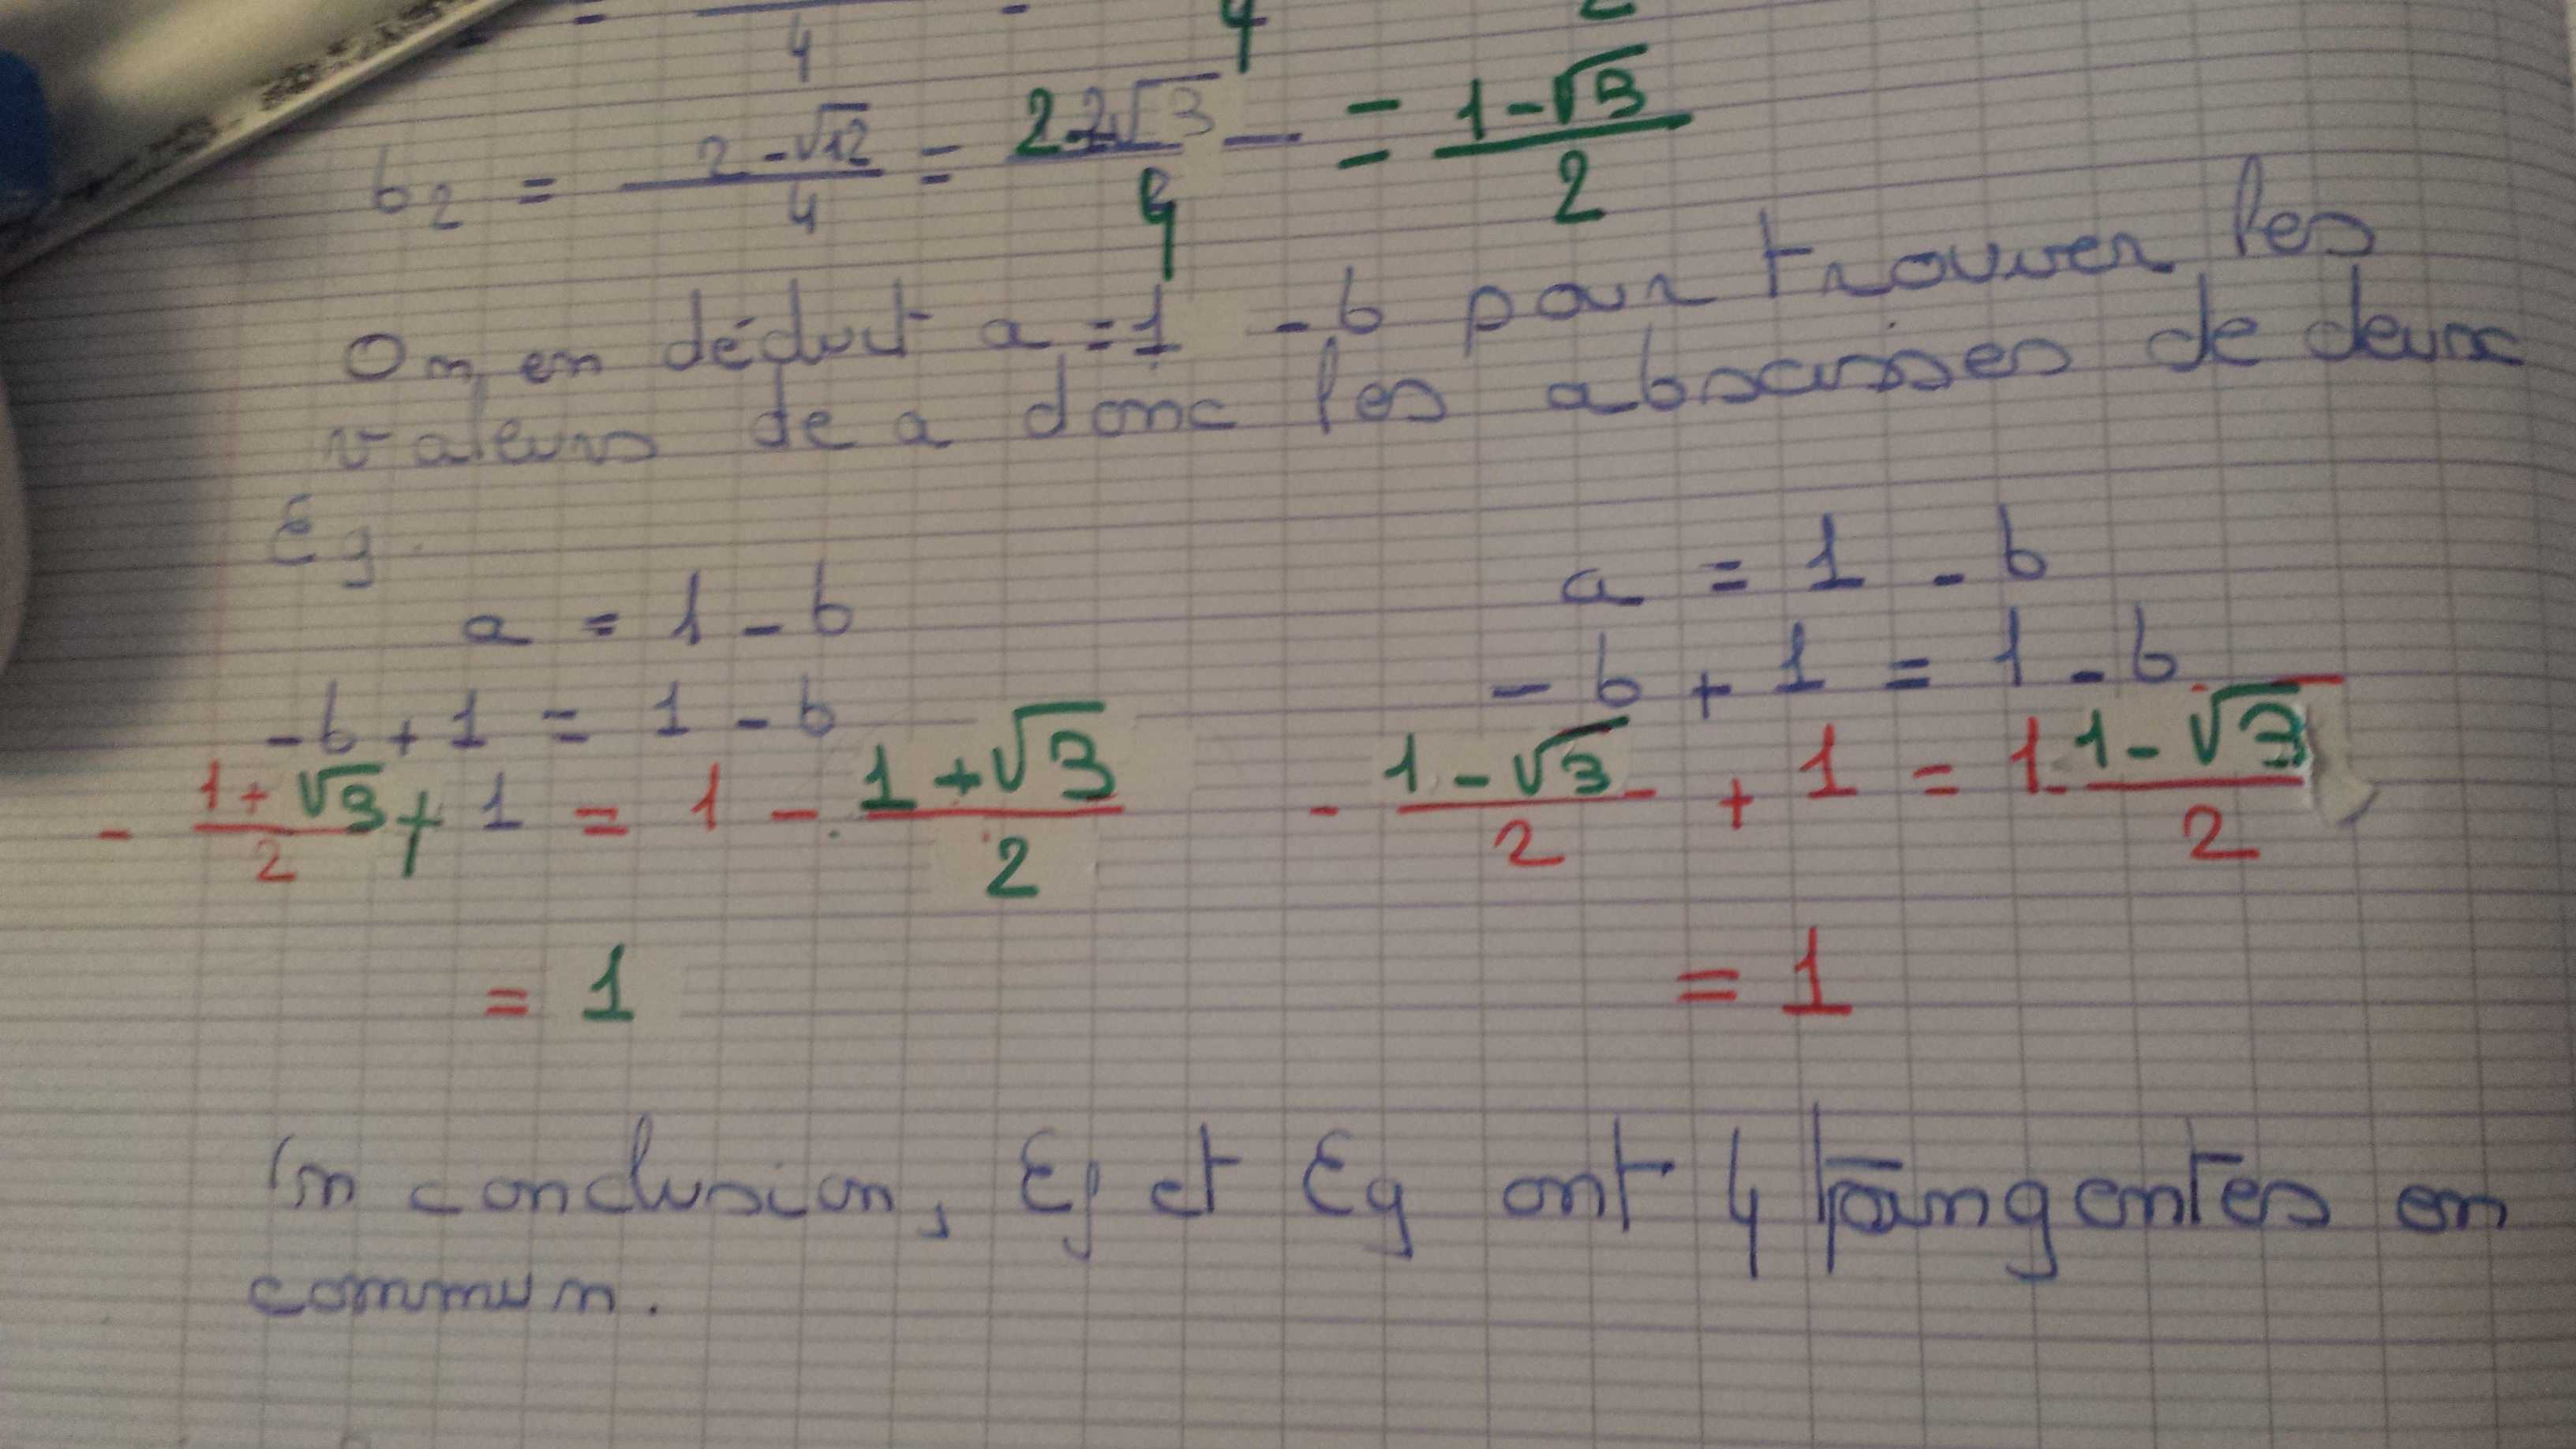 4 4 2
b2 = (2 - √12)/4 = (2-2√3)/4 = (1-√3)/2
On en déduit a = 1 - b pour trouver les
valeurs de a donc les abscisses de deux
Eg
a = 1 - b a = 1 - b
-b + 1 = 1 - b - b + 1 = 1 - b
- (1+√3)/2 + 1 = 1 - (1+√3)/2 - (1-√3)/2 + 1 = 1 - (1-√3)/2
= 1 = 1
En conclusion, Ef et Eg ont 4 tangentes en
commun.